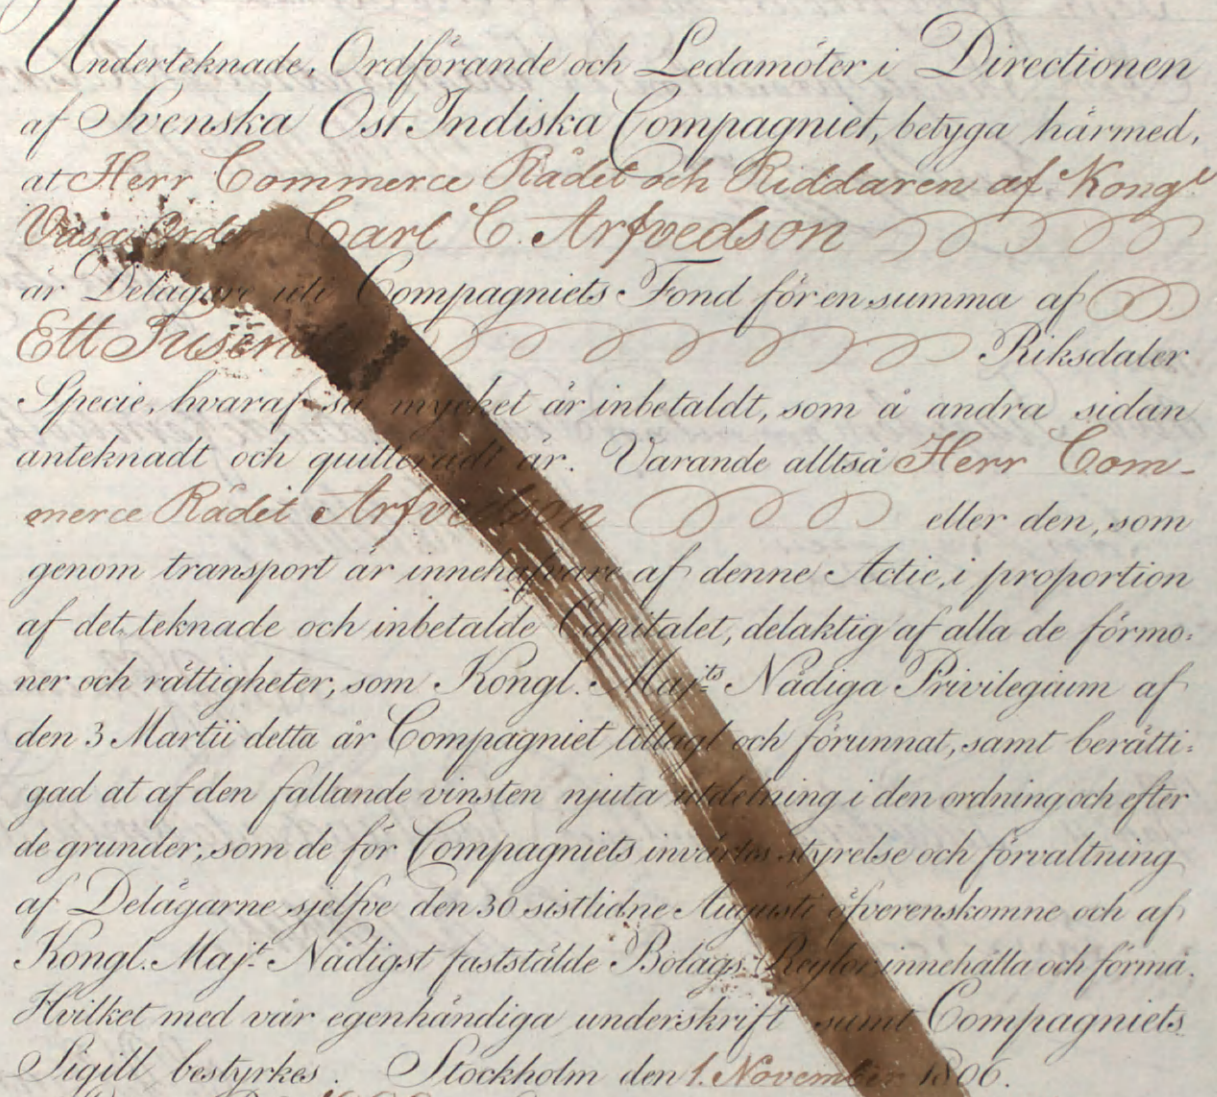 Underteknade, Ordförande och Ledamöter i Directionen
af Svenska Ost Indiska Compagniet, betyga härmed,
at Herr Commerce Rådet och Riddaren af Kongl
Vasa Orden Carl C. Arfvedson
är Delägare uti Compagniets Fond för en summa af
Ett Tusend Riksdaler
Specie, hvaraf så mycket är inbetaldt, som å andra sidan
anteknadt och quitteradt är. Varande alltså Herr Com-
merce Rådet Arfvedson eller den, som
genom transport är innehafvare af denne Actie, i proportion
af det teknade och inbetalde Capitalet, delaktig af alla de förmo:
ner och rättigheter, som Kongl. Maj:ts Nådiga Privilegium af
den 3 Martii detta år Compagniet tillagt och förunnat, samt berätti:
gad at af den fallande vinsten njuta utdelning i den ordning och efter
de grunder, som de för Compagniets invärtes styrelse och förvaltning
af Delägarne sjelfve den 30 sistlidne Augusti öfverenskomne och af
Kongl. Maj:t Nådigst fastställde Bolags Reglor innehålla och förmå.
Hvilket med vår egenhändiga underskrift samt Compagniets
Sigill bestyrkes. Stockholm den 1. November 1806.